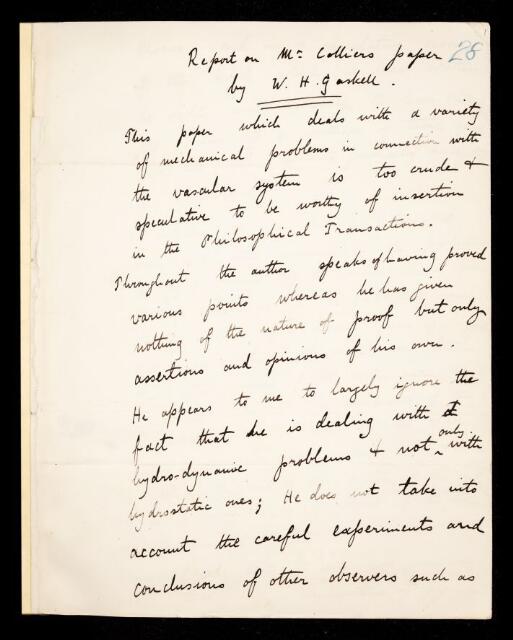 Report on Mr Colliers paper 28
by W. H. Gaskell.
This paper which deals with a variety
of mechanical problems in connection with
the vascular system is too crude &
speculative to be worthy of insertion
in the Philosophical Transactions.
Throughout the author speaks of having proved
various points whereas he has given
nothing of the nature of proof but only
assertions and opinions of his own.
He appears to me to largely ignore the
fact that he is dealing with
hydro-dynamic problems & not only with
hydrostatic ones; He does not take into
account the careful experiments and
conclusions of other observers such as